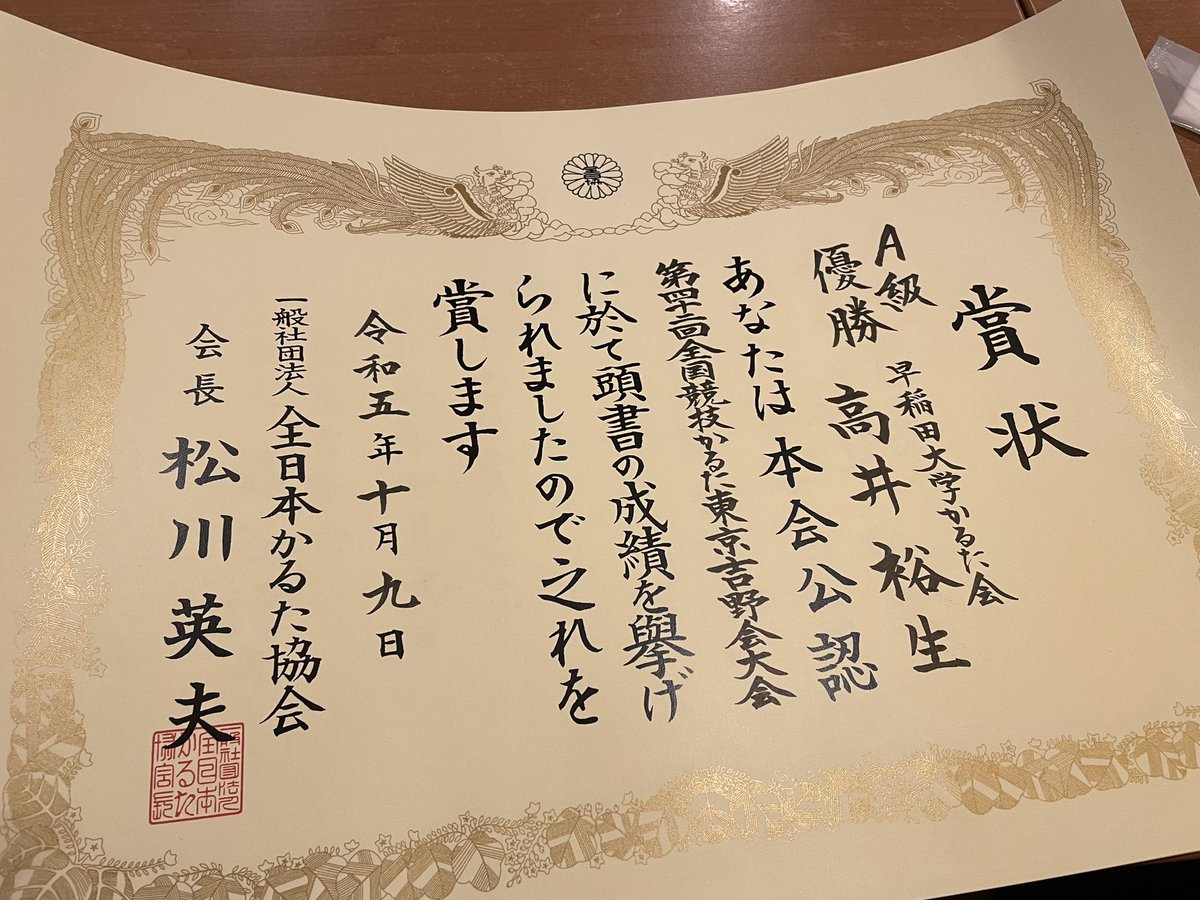 賞状
A級
優勝
早稲田大学かるた会
高井裕生
あなたは本会公認
第四十二回全国競技かるた東京吉野会大会
に於て頭書の成績を擧げ
られましたので之れを
賞します
令和五年十月九日
一般社団法人 全日本かるた協会
会長 松川英夫